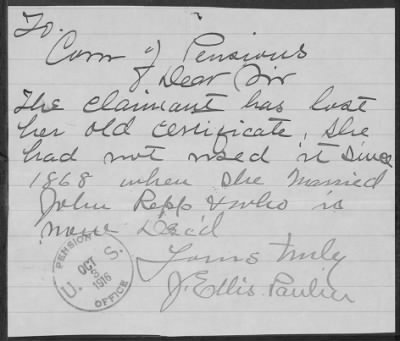 To.
Com of Pensions
Dear Sir
The claimant has lost
her old certificate, she
had not used it since
1868 when she married
John Repp & who is
now Dec'd
Yours Truly
J. Ellis
U. S. PENSION OFFICE
OCT
3
1916